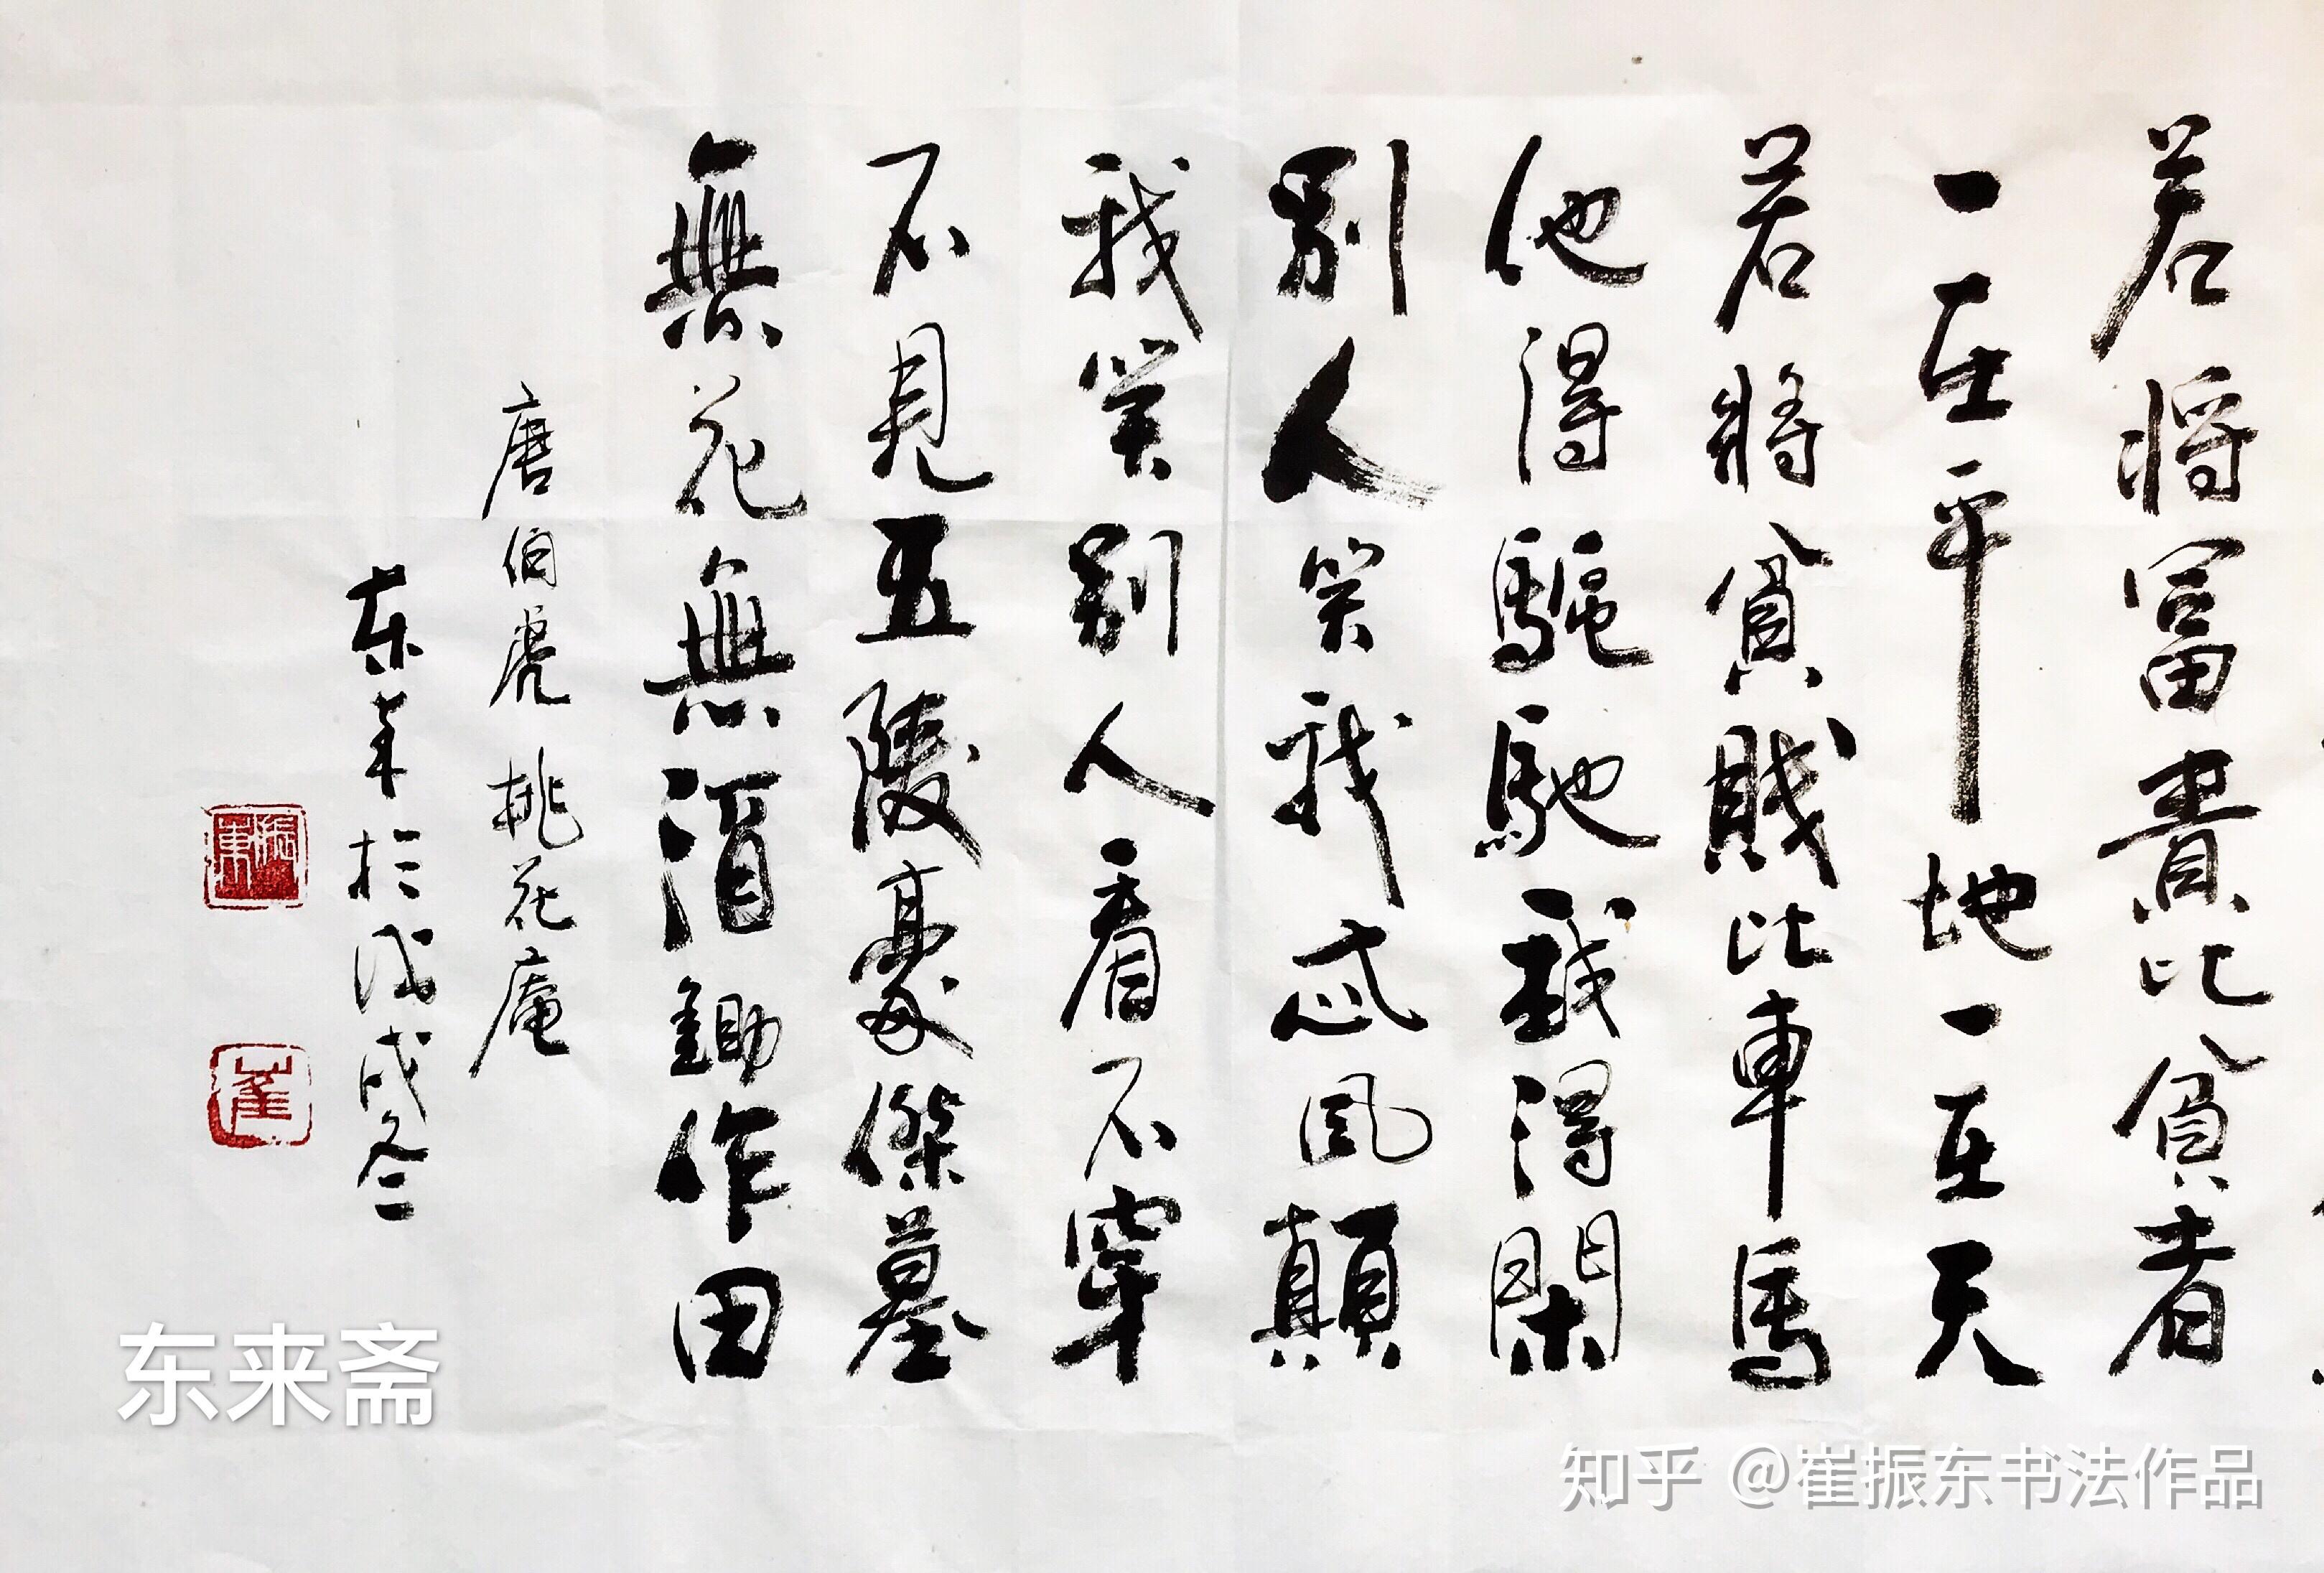 若将富貴比貧者
一在平地一在天
若將貧賤比車馬
他得驅馳我得閑
别人笑我忒風顛
我笑别人看不穿
不見五陵豪傑墓
無花無酒鋤作田
唐伯虎 桃花庵
东来於戊戌冬
振東
崔
东来斋
知乎 @崔振东书法作品